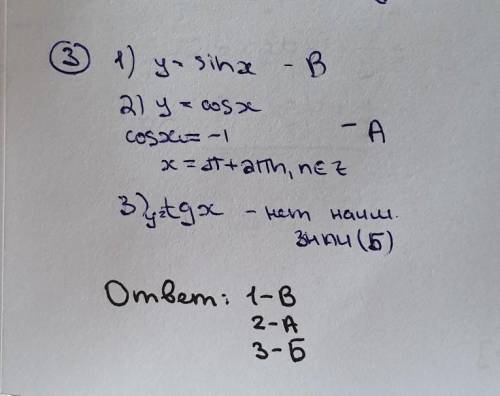 ③ 1) y = sinx - В
2) y = cosx
cosx = -1 - А
x = π + 2πn, n∈Z
3) y=tgx - нет наим.
знач (Б)
Ответ: 1-В
2-А
3-Б